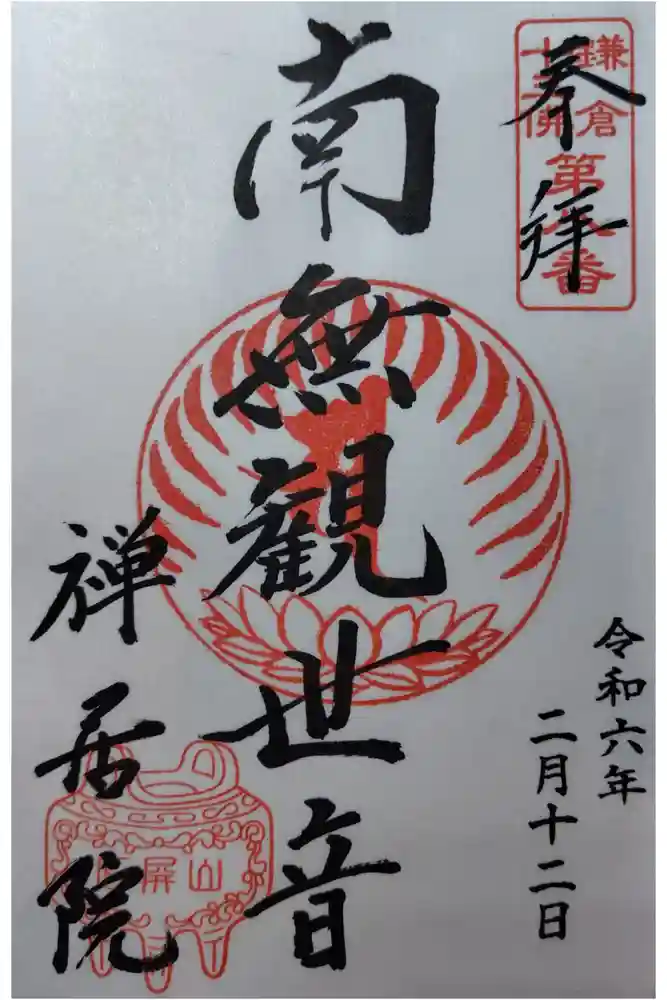 奉拝
鎌倉
十三佛
第八番
令和六年
二月十二日
南無観世音
禅居院
山屏